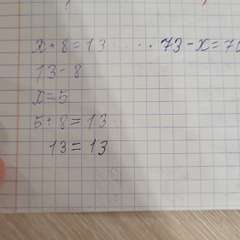 x+8=13 .. 73-x=70
13-8
x=5
5+8=13
13=13